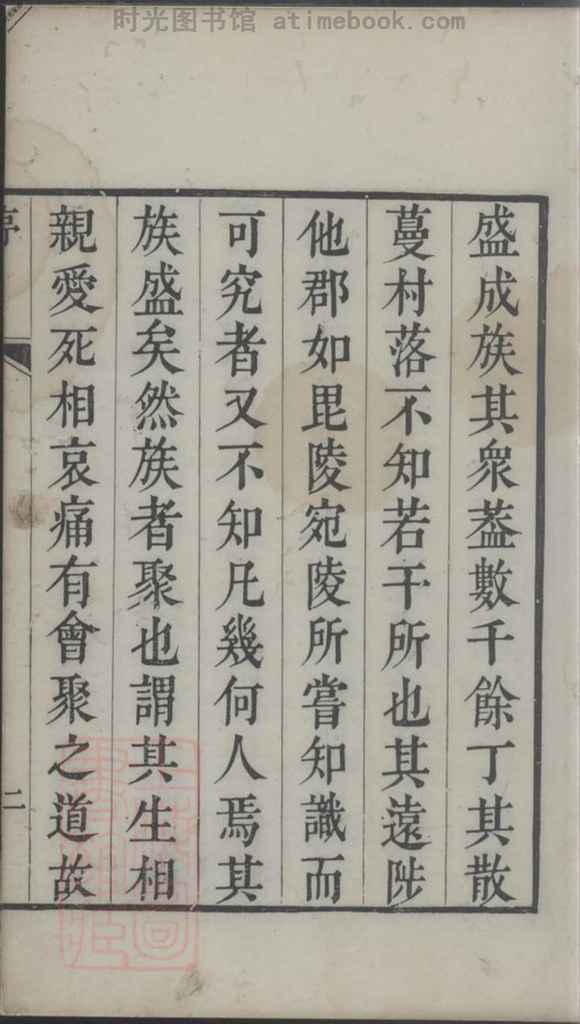 时光图书馆 atimebook.com
盛成族其衆葢數千餘丁其散
蔓村落不知若干所也其遠陟
他郡如毘陵宛陵所嘗知識而
可究者又不知凡幾何人焉其
族盛矣然族者聚也謂其生相
親愛死相哀痛有會聚之道故
二